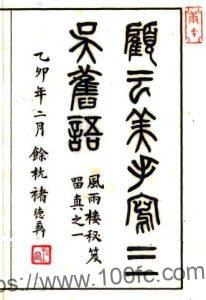 顧云美手寫三
吳舊語
風雨樓秘笈
留真之一
乙卯年二月餘杭褚德彝
ps://www.100fc.com